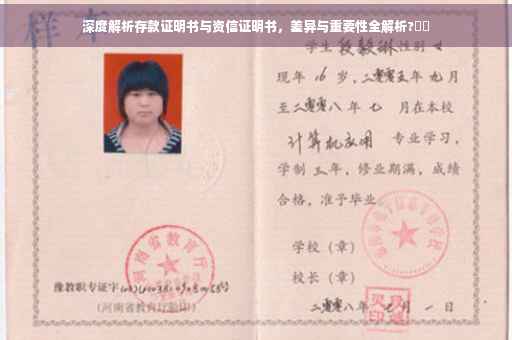 深度解析存款证明书与资信证明书，差异与重要性全解析?
样本
学生段毅琳性别女
现年16岁，二零零五年九月
至二零零八年七月在本校
计算机应用专业学习，
学制三年，修业期满，成绩
合格，准予毕业。
学校（章）
校长（章）
二零零八年 月一日
河南省教育厅
豫教职专证字
（河南省教育厅验印）